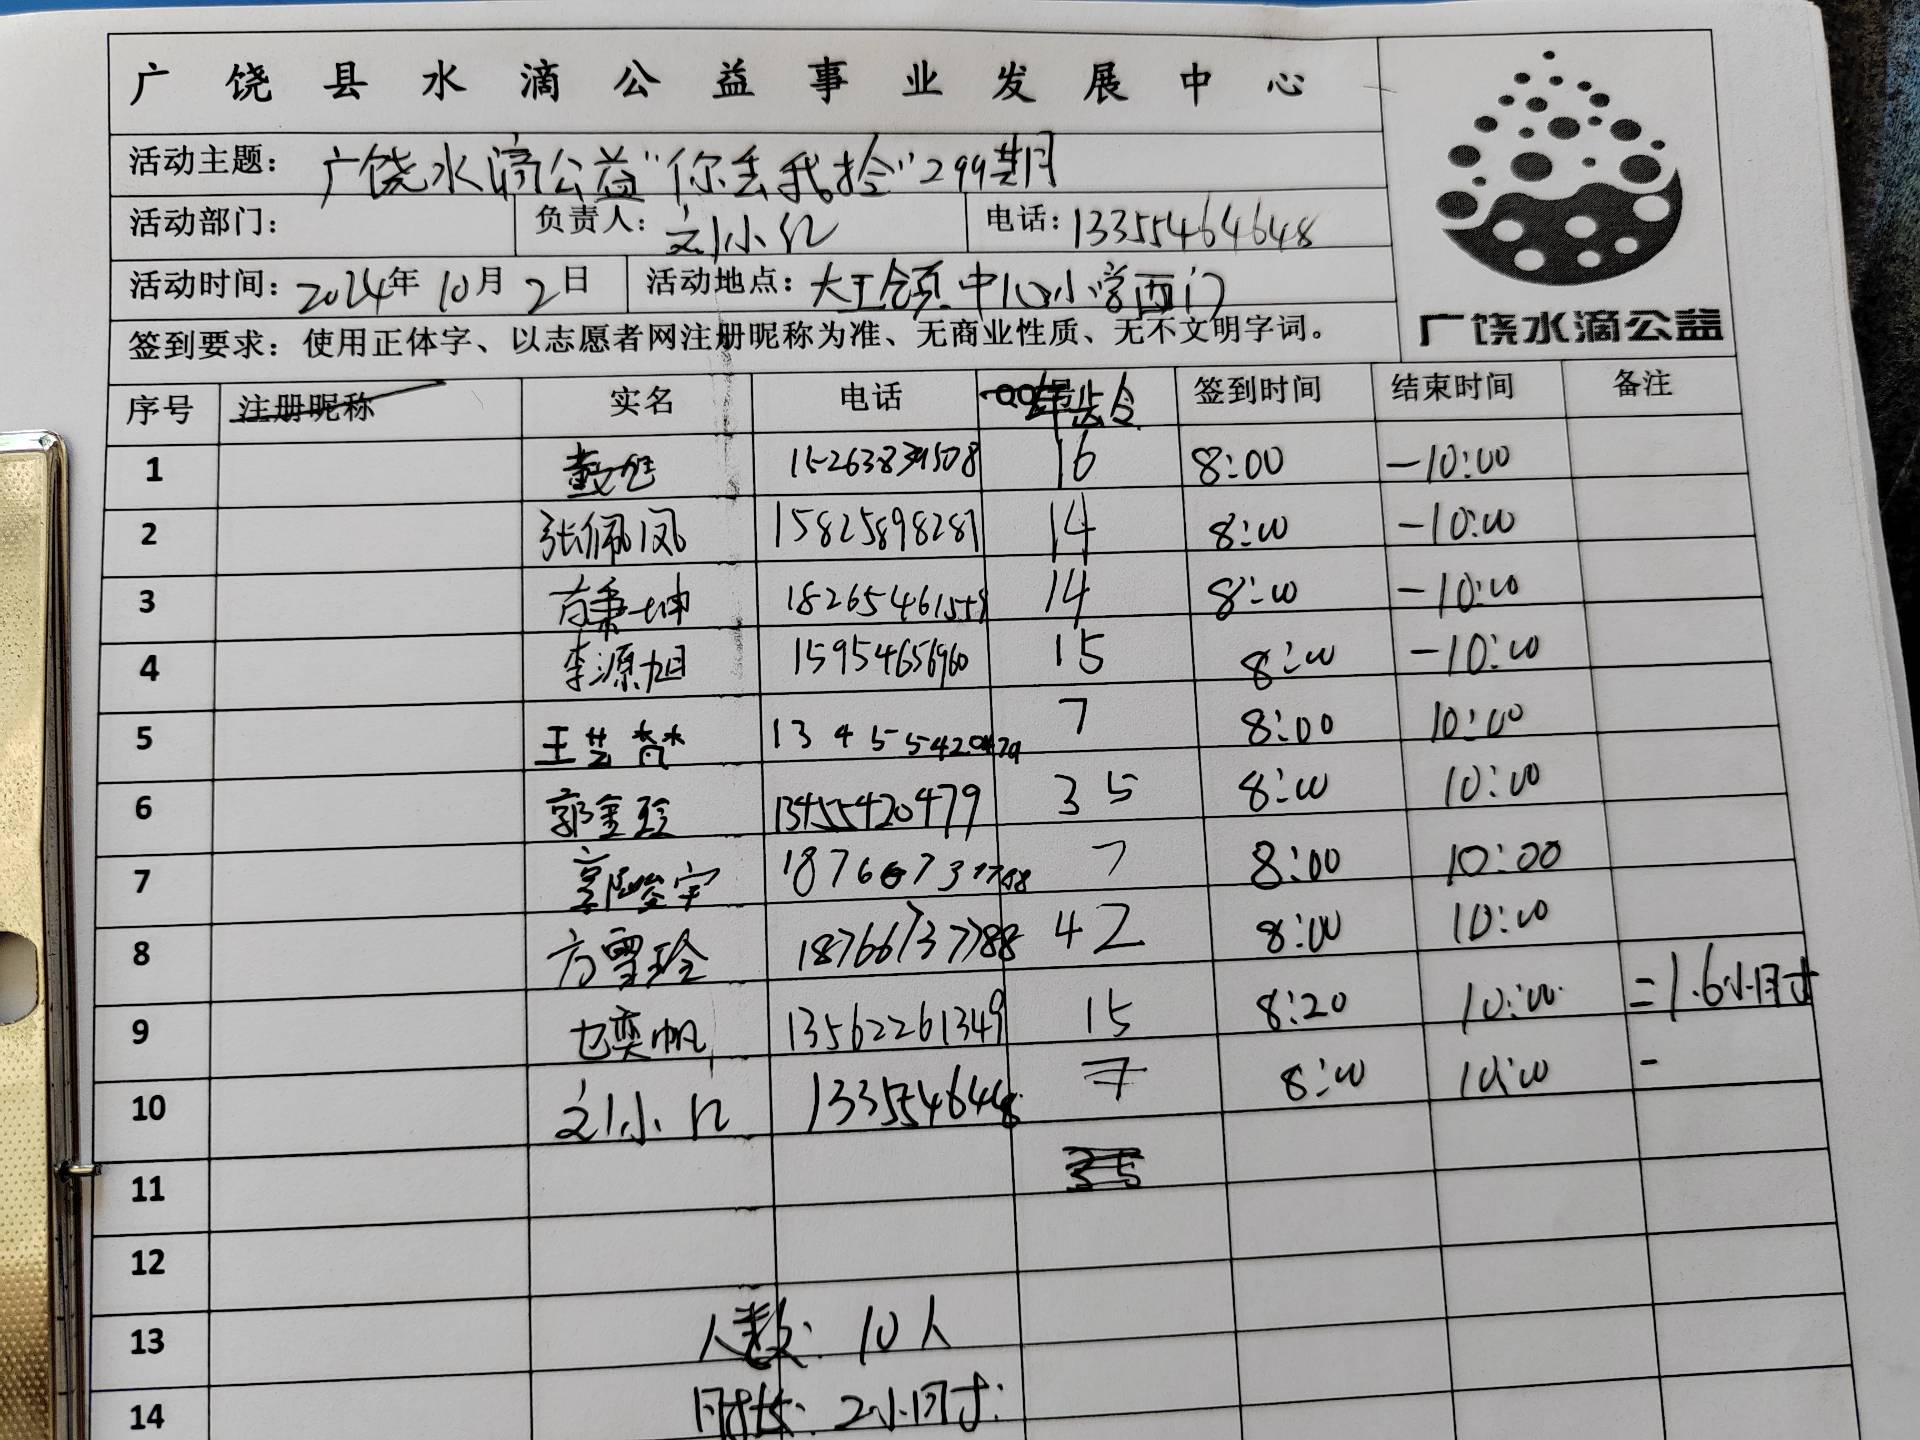 广饶县水滴公益事业发展中心
活动主题：广饶水滴公益“你丢我捡”299期
活动部门： 负责人：刘小红 电话：13355464648
活动时间：2024年10月2日 活动地点：大王镇中心小学西门
签到要求：使用正体字、以志愿者网注册昵称为准、无商业性质、无不文明字词。
广饶水滴公益
序号 注册昵称 实名 电话 年龄 签到时间 结束时间 备注
1 16 8:00 -10:00
2 张佩凤 15825898287 14 8:00 -10:00
3 14 8:00 -10:00
4 李源旭 15954656960 15 8:00 -10:00
5 王芸赞 13455420479 7 8:00 10:00
6 郭金玲 13455420479 35 8:00 10:00
7 18766737788 7 8:00 10:00
8 方雪玲 18766737788 42 8:00 10:00
9 奕帆 13562261349 15 8:20 10:00 =1.6小时
10 刘小红 8:00 10:00 -
11 35
12
13 人数：10人
14 时长：2小时